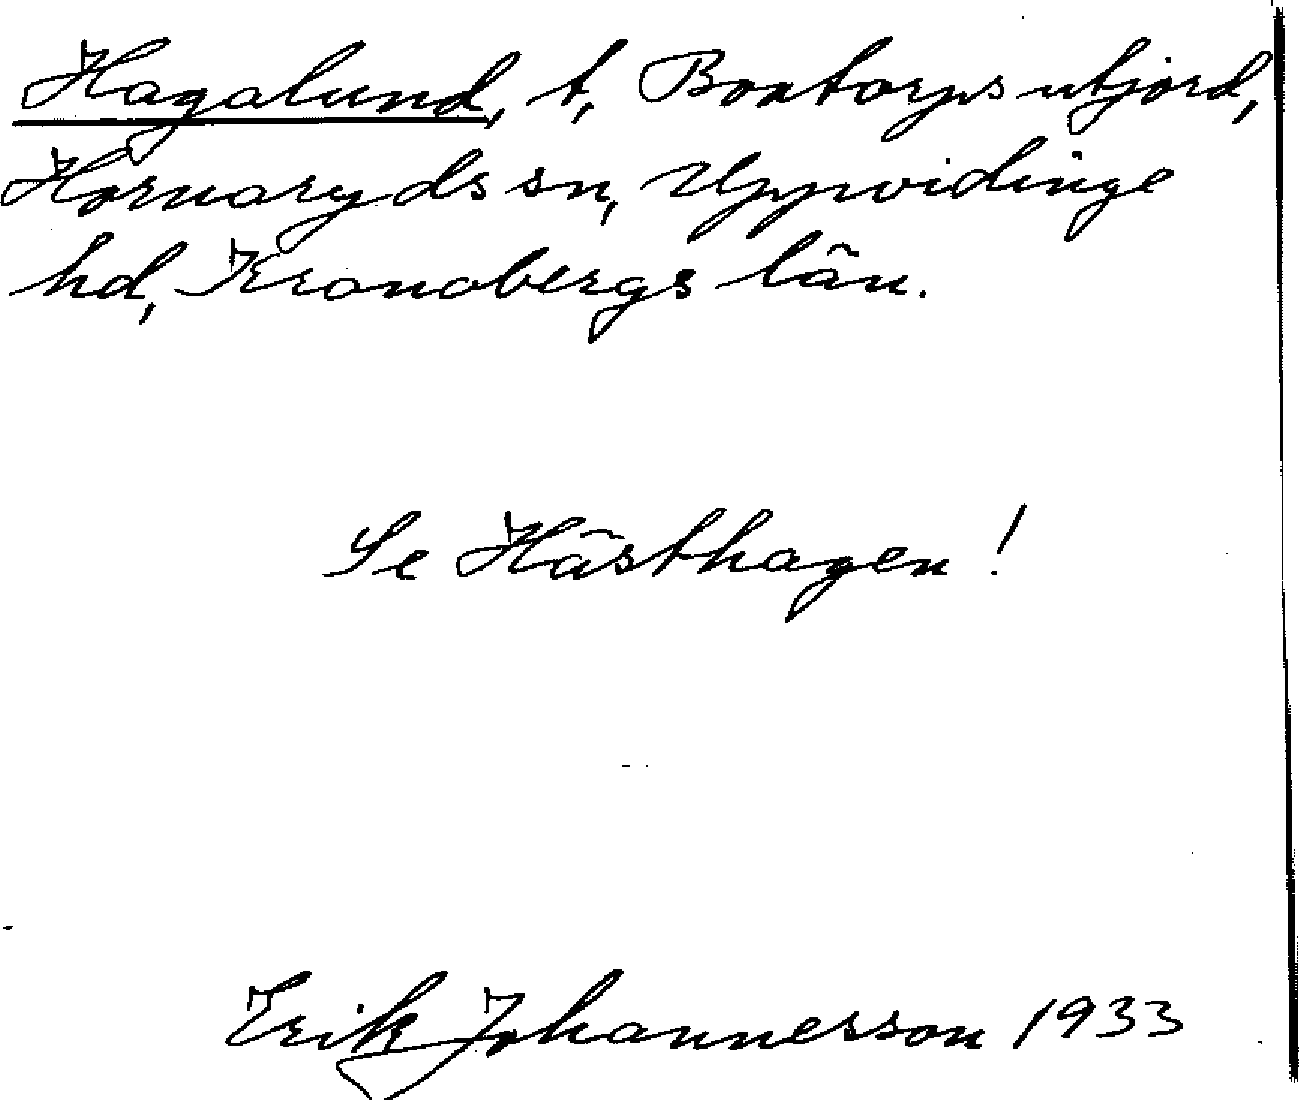 Hagalund, t, Boxtorps utjord,
Hornaryds sn, Uppvidinge
hd, Kronobergs län.
Se Hästhagen!
Erik Johannesson 1933